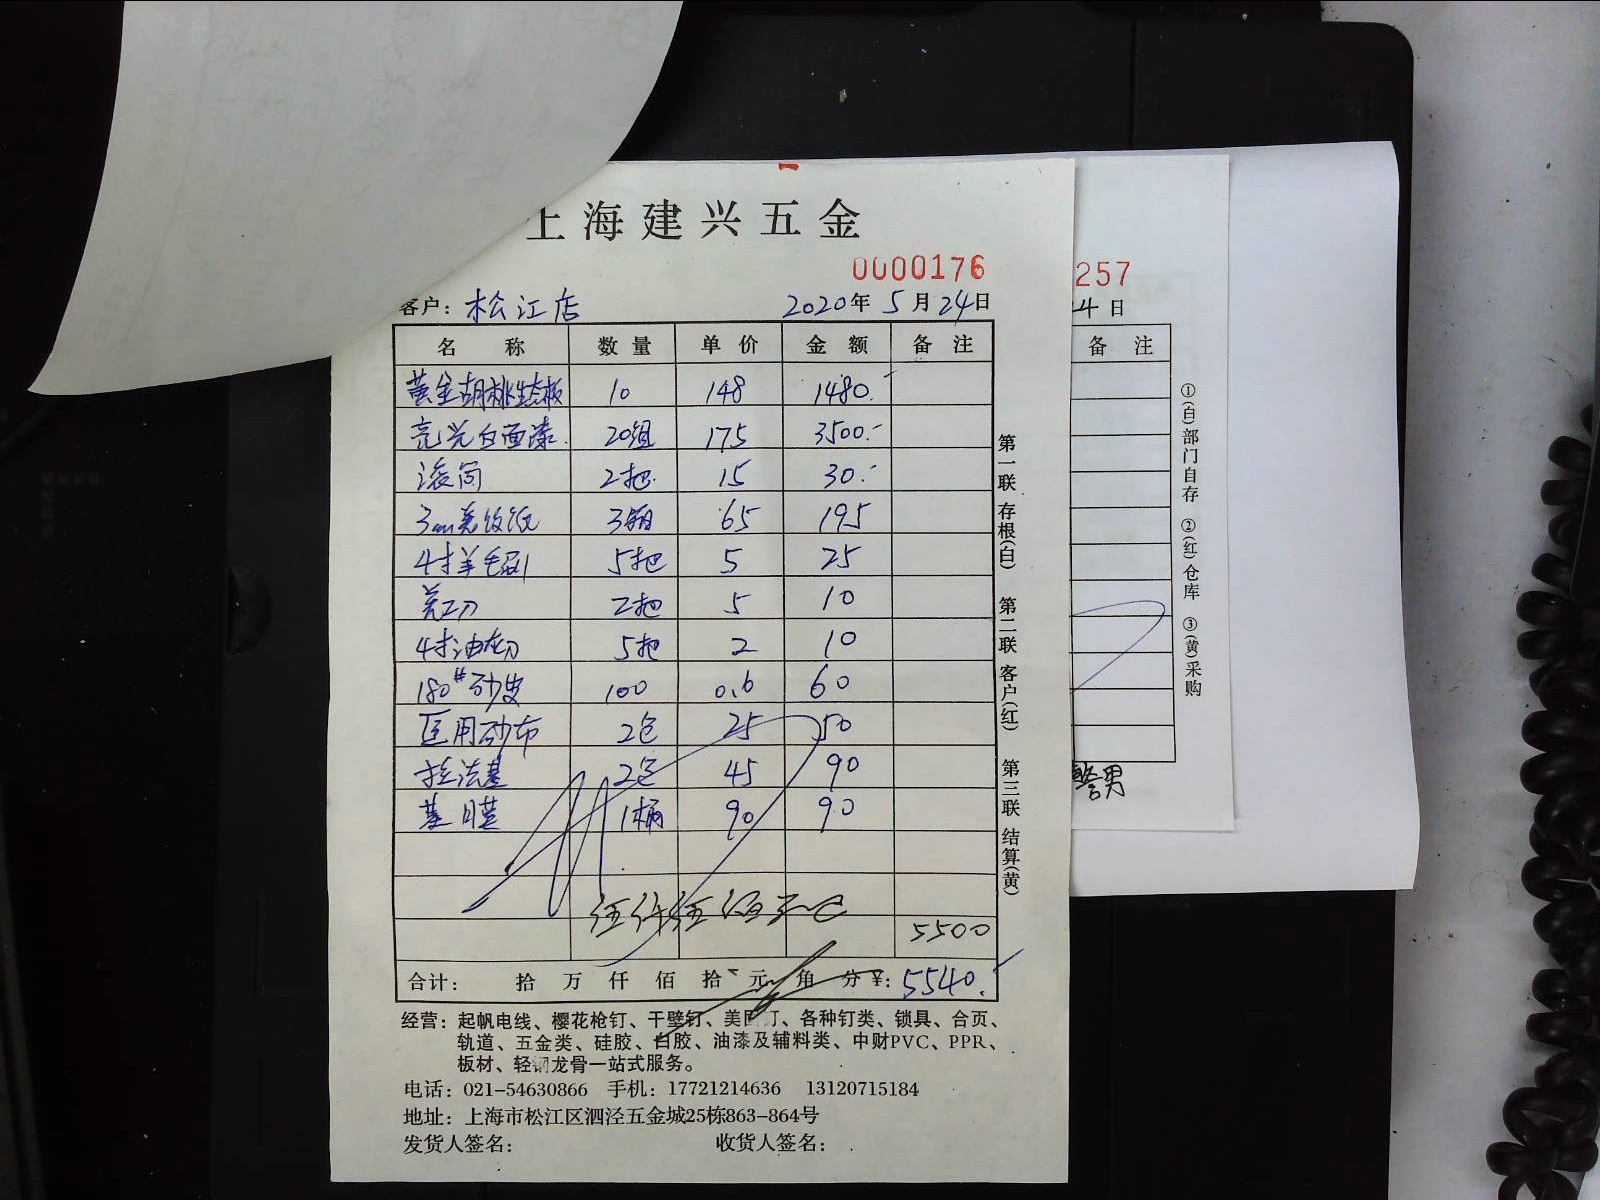 上海建兴五金
0000176
客户：松江店 2020年5月24日
名称 数量 单价 金额 备注
黄金胡桃生态板 10 148 1480.-
亮光白面漆 20组 175 3500.-
滚筒 2把 15 30.-
3cm美纹纸 3箱 65 195
4寸羊毛刷 5把 5 25
美工刀 2把 5 10
4寸油灰刀 5把 2 10
180#砂皮 100 0.6 60
医用砂布 2包 25 50
拉法基 2包 45 90
基膜 1桶 90 90
伍仟伍佰元
5500
合计： 拾 万 仟 佰 拾 元 角 分 ¥: 5540.-
经营：起帆电线、樱花枪钉、干壁钉、美固钉、各种钉类、锁具、合页、
轨道、五金类、硅胶、白胶、油漆及辅料类、中财PVC、PPR、
板材、轻钢龙骨一站式服务。
电话：021-54630866 手机：17721214636 13120715184
地址：上海市松江区泗泾五金城25栋863-864号
发货人签名： 收货人签名：
第一联 存根(白) 第二联 客户(红) 第三联 结算(黄)
257
4日
备注
①(白)部门自存 ②(红)仓库 ③(黄)采购
男